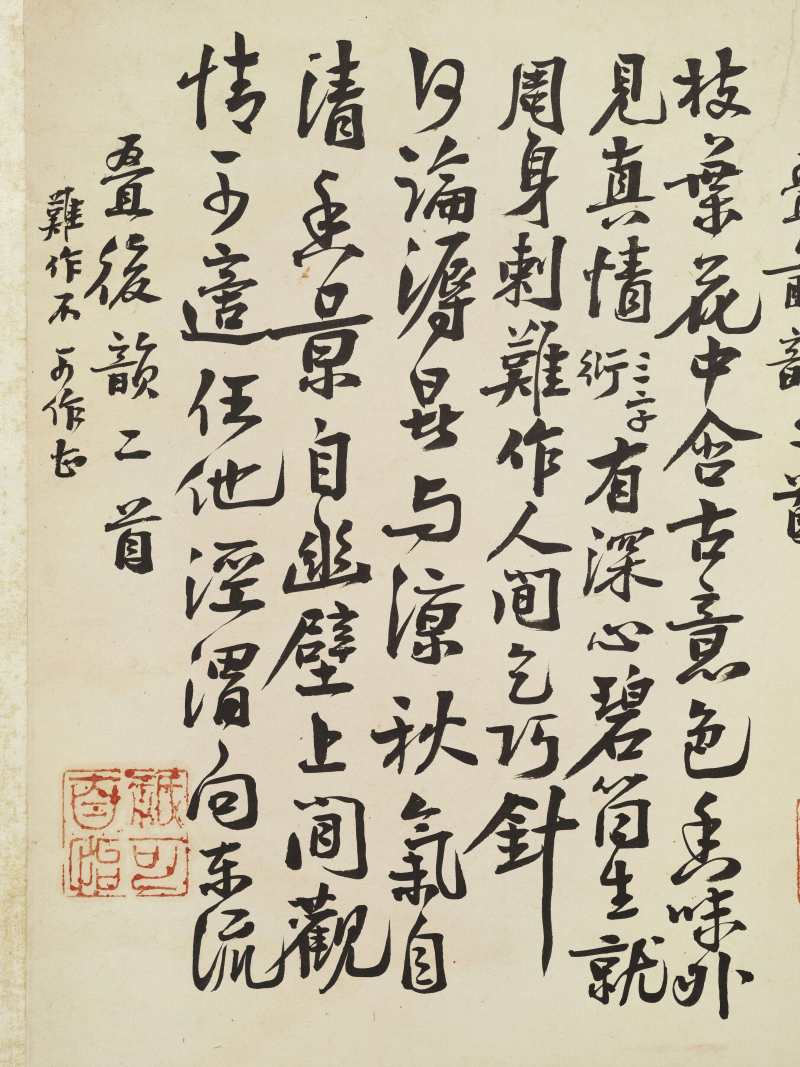 疊前韻二首
枝葉花中含古意色香味外
見真情三字衍有深心碧筩生就
周身刺難作人間乞巧針
何論溽暑與涼秋氣自
清香景自幽壁上間觀
情可適任他涇渭向東流
叠後韻二首
難作不可作